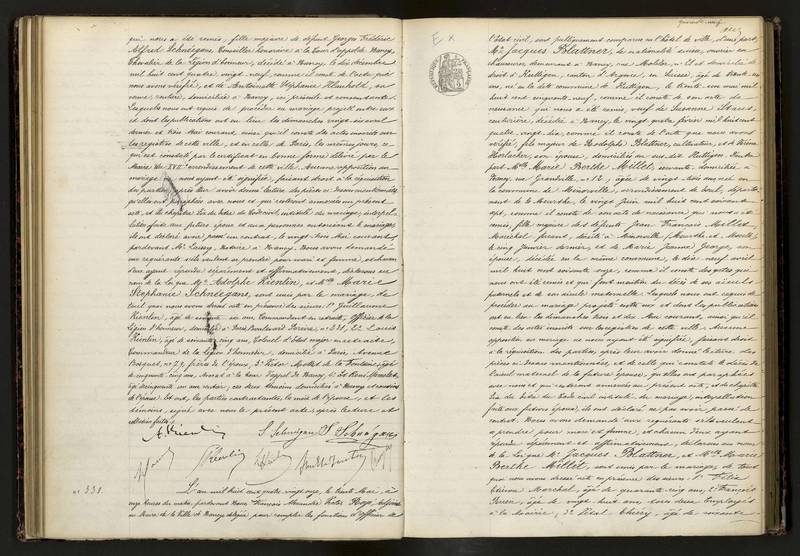 qui nous a été remis, fille majeure de défunt Georges Frédéric
Alfred Schnéégans, Conseiller honoraire à la Cour d'appel de Nancy,
Chevalier de la Légion d'honneur, décédé à Nancy, le dix décembre
mil huit cent quatre vingt neuf, comme il conste de l'acte que
nous avons vérifié, et de Antoinette Stéphanie
sa veuve, rentière, domiciliée à Nancy, ici présente et consentante.
Lesquels nous ont requis de procéder au mariage projeté entre eux
et dont les publications ont eu lieu les dimanches vingt six avril
dernier et trois Mai courant ainsi qu'il conste des actes inscrits sur
les registres de cette ville, et en celle de Paris, les mêmes jours, ce
qui est constaté par le certificat en bonne forme délivré par le
Maire du XVIIe arrondissement de cette ville. Aucune opposition au
mariage ne nous ayant été signifiée, faisant droit à la réquisition
des parties, après leur avoir donné lecture des pièces ci-dessus mentionnées,
qu'elles ont paraphées avec nous et qui resteront annexées au présent
acte, et du chapitre six du titre du Code civil, intitulé du mariage; interpel-
lation faite aux futurs époux et aux personnes autorisant le mariage,
ils ont déclaré avoir passé un contrat, le vingt trois Mai courant
pardevant Me Lanrey, Notaire à Nancy. Nous avons demandé
aux requérants s'ils veulent se prendre pour mari et femme, et chacun
d'eux ayant répondu séparément et affirmativement, déclarons au
nom de la Loi que Mr Adolphe Rientlin, et Mlle Marie
Stéphanie Schnéégans, sont unis par le mariage. De
tout quoi nous avons dressé acte en présence des sieurs 1° Guillaume
Légion d'honneur, domicilié à Paris, Boulevard Péreire, n° 231, 2° Louis
Commandeur de la Légion d'honneur, domicilié à Paris, Avenue
Bosquet, n° 29, frères de l'époux, 3° Victor Mottet de la Fontaine, âgé
de cinquante cinq ans, Avocat à la Cour d'appel de Nancy, 4°
de l'épouse. Et ont, les parties contractantes, la mère de l'épouse, et les
témoins, signé avec nous le présent acte, après lecture et
collation faites.
S. Schnéégans
n° 331.
L'an mil huit cent quatre vingt onze, le trente Mai, à
onze heures du matin, pardevant Nous François Alexandre Victor
au Maire de la Ville de Nancy délégué pour remplir les fonctions d'officier de
E x
quarante-neuf
l'état civil, sont publiquement comparus en l'hôtel de ville, d'une part,
Mr Jacques Blattner, de nationalité suisse, ouvrier en
chaussures, demeurant à Nancy, rue Molitor, n° 21 et domicilié de
droit à Küttigen, canton d'Argovie, en Suisse, âgé de trente un
ans, né au dit commune de Küttigen, le trente un mai mil
huit cent cinquante neuf, comme il conste de son acte de
naissance qui nous a été remis, veuf de Suzanne
couturière, décédée à Nancy, le vingt quatre février mil huit cent
quatre vingt dix, comme il conste de l'acte que nous avons
vérifié, fils majeur de Rodolphe Blattner, cultivateur, et de Véréna
Horlacher, son épouse, domiciliés au sus-dit Küttigen. D'autre
part Mlle Marie Berthe Millet, servante, domiciliée à
Nancy, rue Grandville, n° 12, âgée de vingt trois ans, née en
la commune de Minorville, arrondissement de Toul, départe-
ment de la Meurthe, le vingt Juin mil huit cent soixante
sept, comme il conste de son acte de naissance qui nous a été
remis, fille majeure, des défunts Jean François Millet
le cinq Janvier dernier, et de Marie Jeanne George, son
épouse, décédée en la même commune, le dix neuf avril
mil huit cent soixante onze, comme il conste des actes qui
nous ont été remis et qui font mention du décès de ses aïeuls
paternels et de son aïeule maternelle. Lesquels nous ont requis de
procéder au mariage projeté entre eux et dont les publications
ont eu lieu les dimanches trois et dix Mai courant, ainsi qu'il
conste des actes inscrits sur les registres de cette ville. Aucune
opposition au mariage ne nous ayant été signifiée, faisant droit
à la réquisition des parties, après leur avoir donné lecture des
pièces ci-dessus mentionnées, et de celle qui constate le décès de
l'aïeul maternel de la future épouse, qu'elles ont paraphées
avec nous et qui resteront annexées au présent acte, et du chapitre
six du titre du Code civil intitulé du mariage; interpellation
faite aux futurs époux, ils ont déclaré ne pas avoir passé de
contrat. Nous avons demandé aux requérants s'ils veulent
se prendre pour mari et femme, et chacun d'eux ayant
répondu séparément et affirmativement, déclarons au nom
de la Loi que Mr Jacques Blattner et Mlle Marie
Berthe Millet, sont unis par le mariage. De tout
quoi nous avons dressé acte en présence des sieurs 1° Félix
Étienne Marchal, âgé de quarante cinq ans, 2° François
Perrin, âgé de vingt huit ans, tous deux Employés
à la Mairie, 3° Noël Thiéry, âgé de soixante